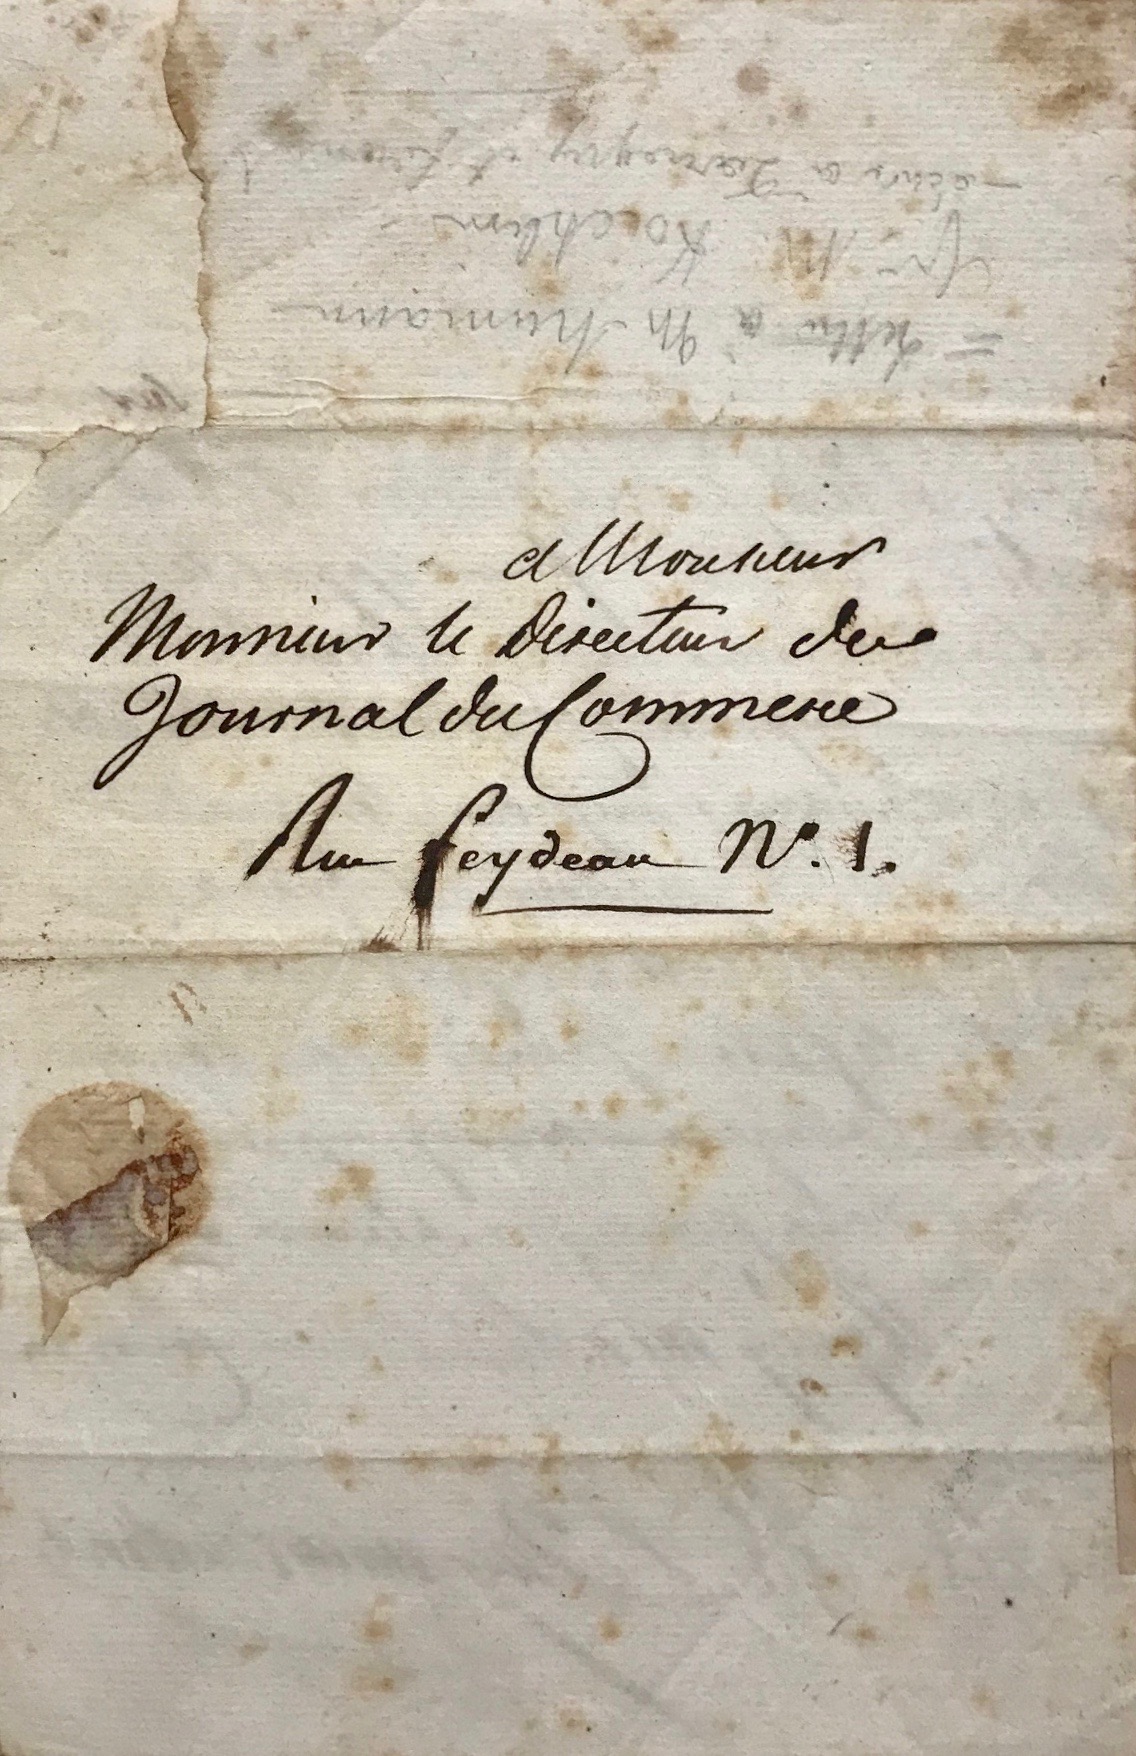 a Monsieur
Monsieur le Directeur du
Journal du Commerce
Rue feydeau N°. 1.
= Lettre à M humann
M. Koechlin
et